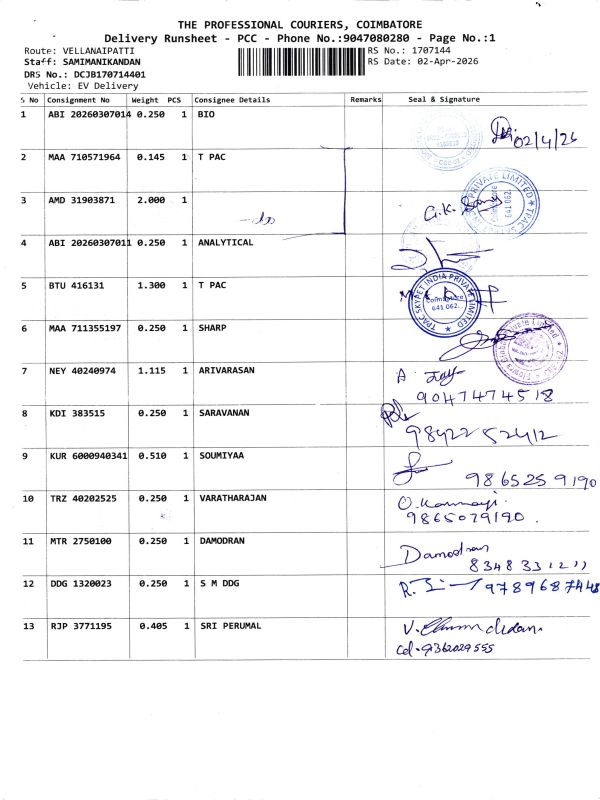 THE PROFESSIONAL COURIERS, COIMBATORE
Delivery Runsheet - PCC - Phone No.:9047080280 - Page No.:1
Route: VELLANAIPATTI
RS No.: 1707144
Staff: SAMIMANIKANDAN
RS Date: 02-Apr-2026
DRS No.: DCJB170714401
Vehicle: EV Delivery
S No Consignment No Weight PCS Consignee Details Remarks Seal & Signature
1 ABI 20260307014 0.250 1 BIO
02/4/26
2 MAA 710571964 0.145 1 T PAC
3 AMD 31903871 2.000 1
-do
G.K. Samy
641 062
4 ABI 20260307011 0.250 1 ANALYTICAL
5 BTU 416131 1.300 1 T PAC
TPAC SKYPET INDIA PRIVATE LIMITED
Coimbatore
641 062.
6 MAA 711355197 0.250 1 SHARP
7 NEY 40240974 1.115 1 ARIVARASAN
9047474518
8 KDI 383515 0.250 1 SARAVANAN
9842252412
9 KUR 6000940341 0.510 1 SOUMIYAA
9865259190
10 TRZ 40202525 0.250 1 VARATHARAJAN
9865079190.
11 MTR 2750100 0.250 1 DAMODRAN
Damodran
8348331211
12 DDG 1320023 0.250 1 S M DDG
9789687448
13 RJP 3771195 0.405 1 SRI PERUMAL
Cel-9362029555